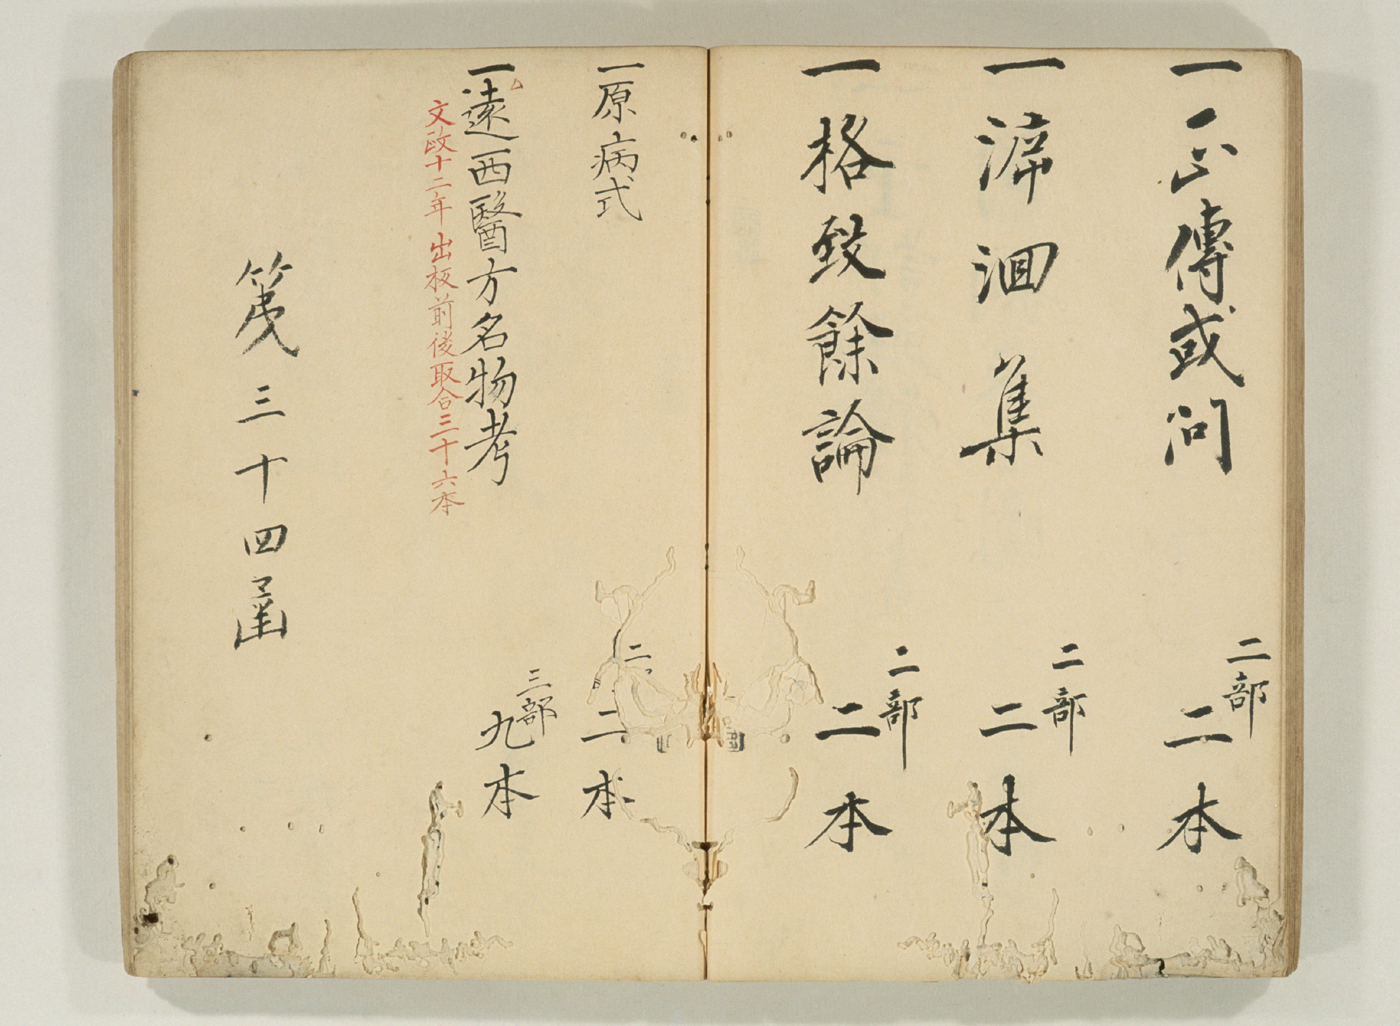 一正傳或問 二部 二本
一泝洄集 二部 二本
一格致餘論 二部 二本
一原病式 二 二本
一遠西醫方名物考 三部 九本
文政十二年出板前後取合三十六本
第三十四凾